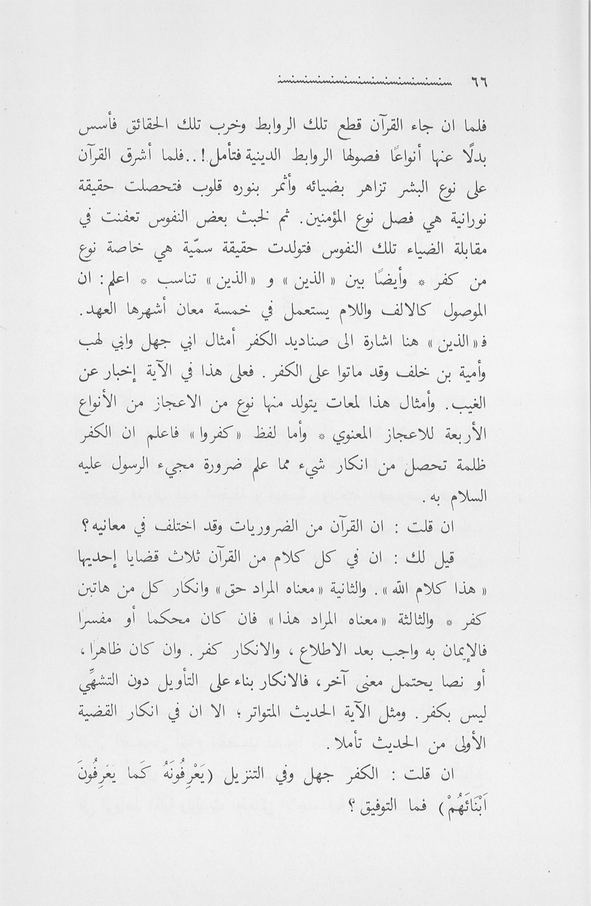 ٦٦
فلما ان جاء القرآن قطع تلك الروابط وخرب تلك الحقائق فأسس
بدلًا عنها أنواعًا فصولها الروابط الدينية فتأمل!..فلما أشرق القرآن
على نوع البشر تزاهر بضيائه وأثمر بنوره قلوب فتحصلت حقيقة
نورانية هي فصل نوع المؤمنين. ثم لخبث بعض النفوس تعفنت في
مقابلة الضياء تلك النفوس فتولدت حقيقة سمّية هي خاصة نوع
من كفر * وأيضًا بين «الذين» و «الذين» تناسب * اعلم: ان
الموصول كالالف واللام يستعمل في خمسة معان أشهرها العهد.
فـ«الذين» هنا اشارة الى صناديد الكفر أمثال ابي جهل وابي لهب
وأمية بن خلف وقد ماتوا على الكفر. فعلى هذا في الآية إخبار عن
الغيب. وأمثال هذا لمعات يتولد منها نوع من الاعجاز من الأنواع
الأربعة للاعجاز المعنوي * وأما لفظ «كفروا» فاعلم ان الكفر
ظلمة تحصل من انكار شيء مما علم ضرورة مجيء الرسول عليه
السلام به.
ان قلت : ان القرآن من الضروريات وقد اختلف في معانيه؟
قيل لك : ان في كل كلام من القرآن ثلاث قضايا إحديها
«هذا كلام الله». والثانية «معناه المراد حق» وانكار كل من هاتين
كفر * والثالثة «معناه المراد هذا» فان كان محكما أو مفسرا
فالإيمان به واجب بعد الاطلاع، والانكار كفر. وان كان ظاهرا،
أو نصا يحتمل معنى آخر، فالانكار بناء على التأويل دون التشهِّي
ليس بكفر. ومثل الآية الحديث المتواتر؛ الا ان في انكار القضية
الأولى من الحديث تأملا.
ان قلت : الكفر جهل وفي التنزيل (يَعْرِفُونَهُ كَما يَعْرِفُونَ
اَبْنَائَهُمْ) فما التوفيق؟